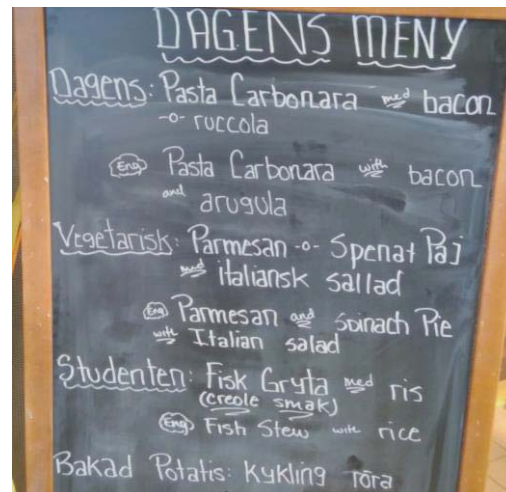 DAGENS MENY
Dagens: Pasta Carbonara med bacon
-o- ruccola
Eng Pasta Carbonara with bacon
and arugula
Vegetarisk: Parmesan -o- Spenat Paj
med italiansk sallad
Eng Parmesan and Spinach Pie
with Italian salad
Studenten: Fisk Gryta med ris
(creole smak)
Eng Fish Stew with rice
Bakad Potatis: Kykling röra